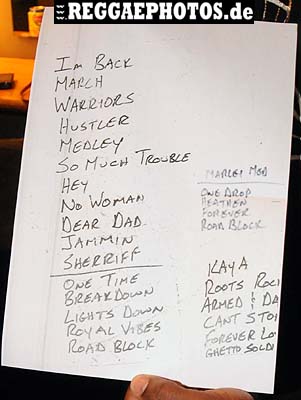 REGGAEPHOTOS.de
Im Back
MARCH
WARRIORS
HUSTLER
MEDLEY
SO MUCH TROUBLE
HEY
NO WOMAN
DEAR DAD
JAMMIN
SHERRIFF
ONE TIME
BREAKDOWN
LIGHTS DOWN
ROYAL VIBES
ROAD BLOCK
MARLEY MED
ONE DROP
HEATHEN
FOREVER
ROAD BLOCK
KAYA
ROOTS ROC
ARMED & DA
CANT STO
FOREVER LO
GHETTO SOLDI